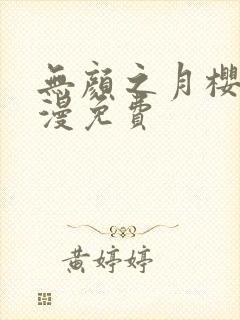 無顏之月櫻
漫免費
黃婷婷